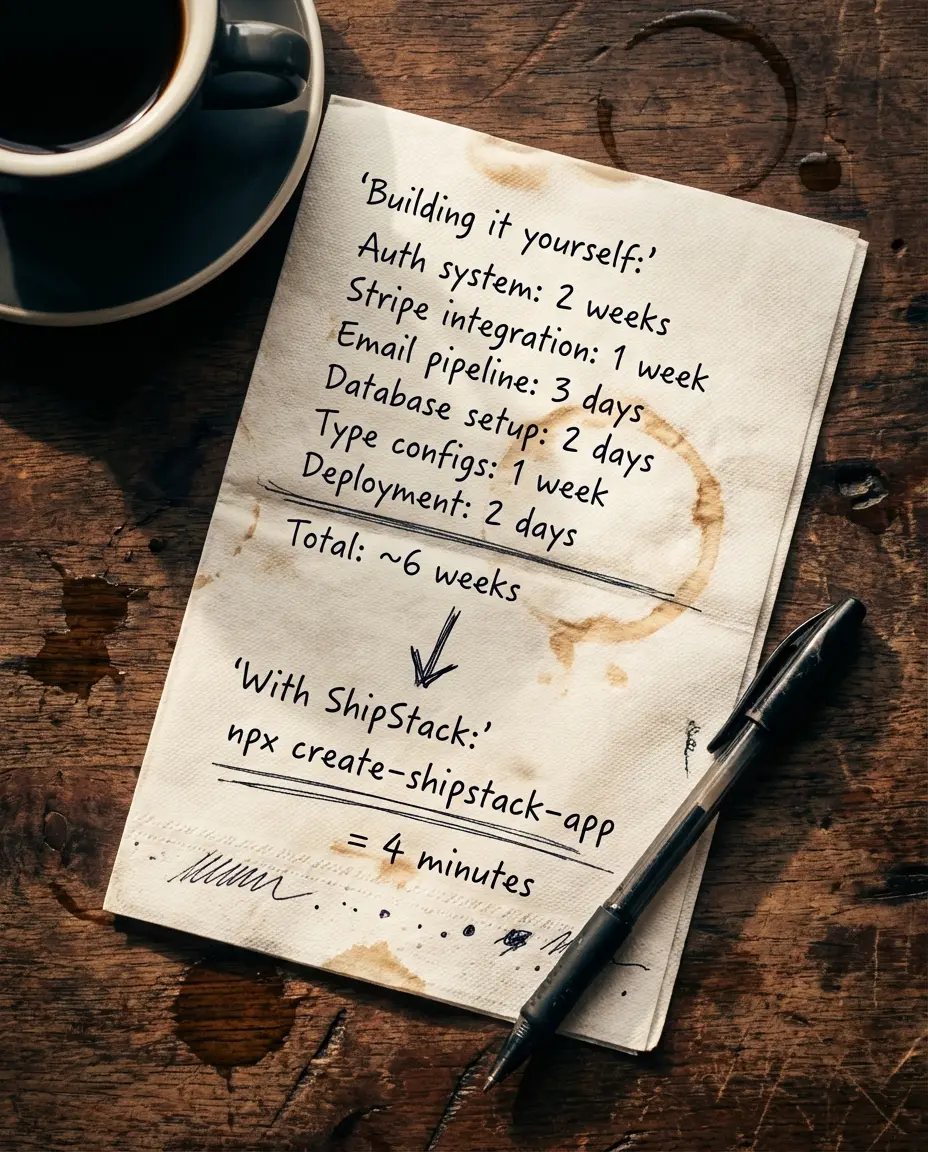 ‘Building it yourself:’
Auth system: 2 weeks
Stripe integration: 1 week
Email pipeline: 3 days
Database setup: 2 days
Type configs: 1 week
Deployment: 2 days
Total: ~6 weeks
‘With ShipStack:’
npx create-shipstack-app
= 4 minutes